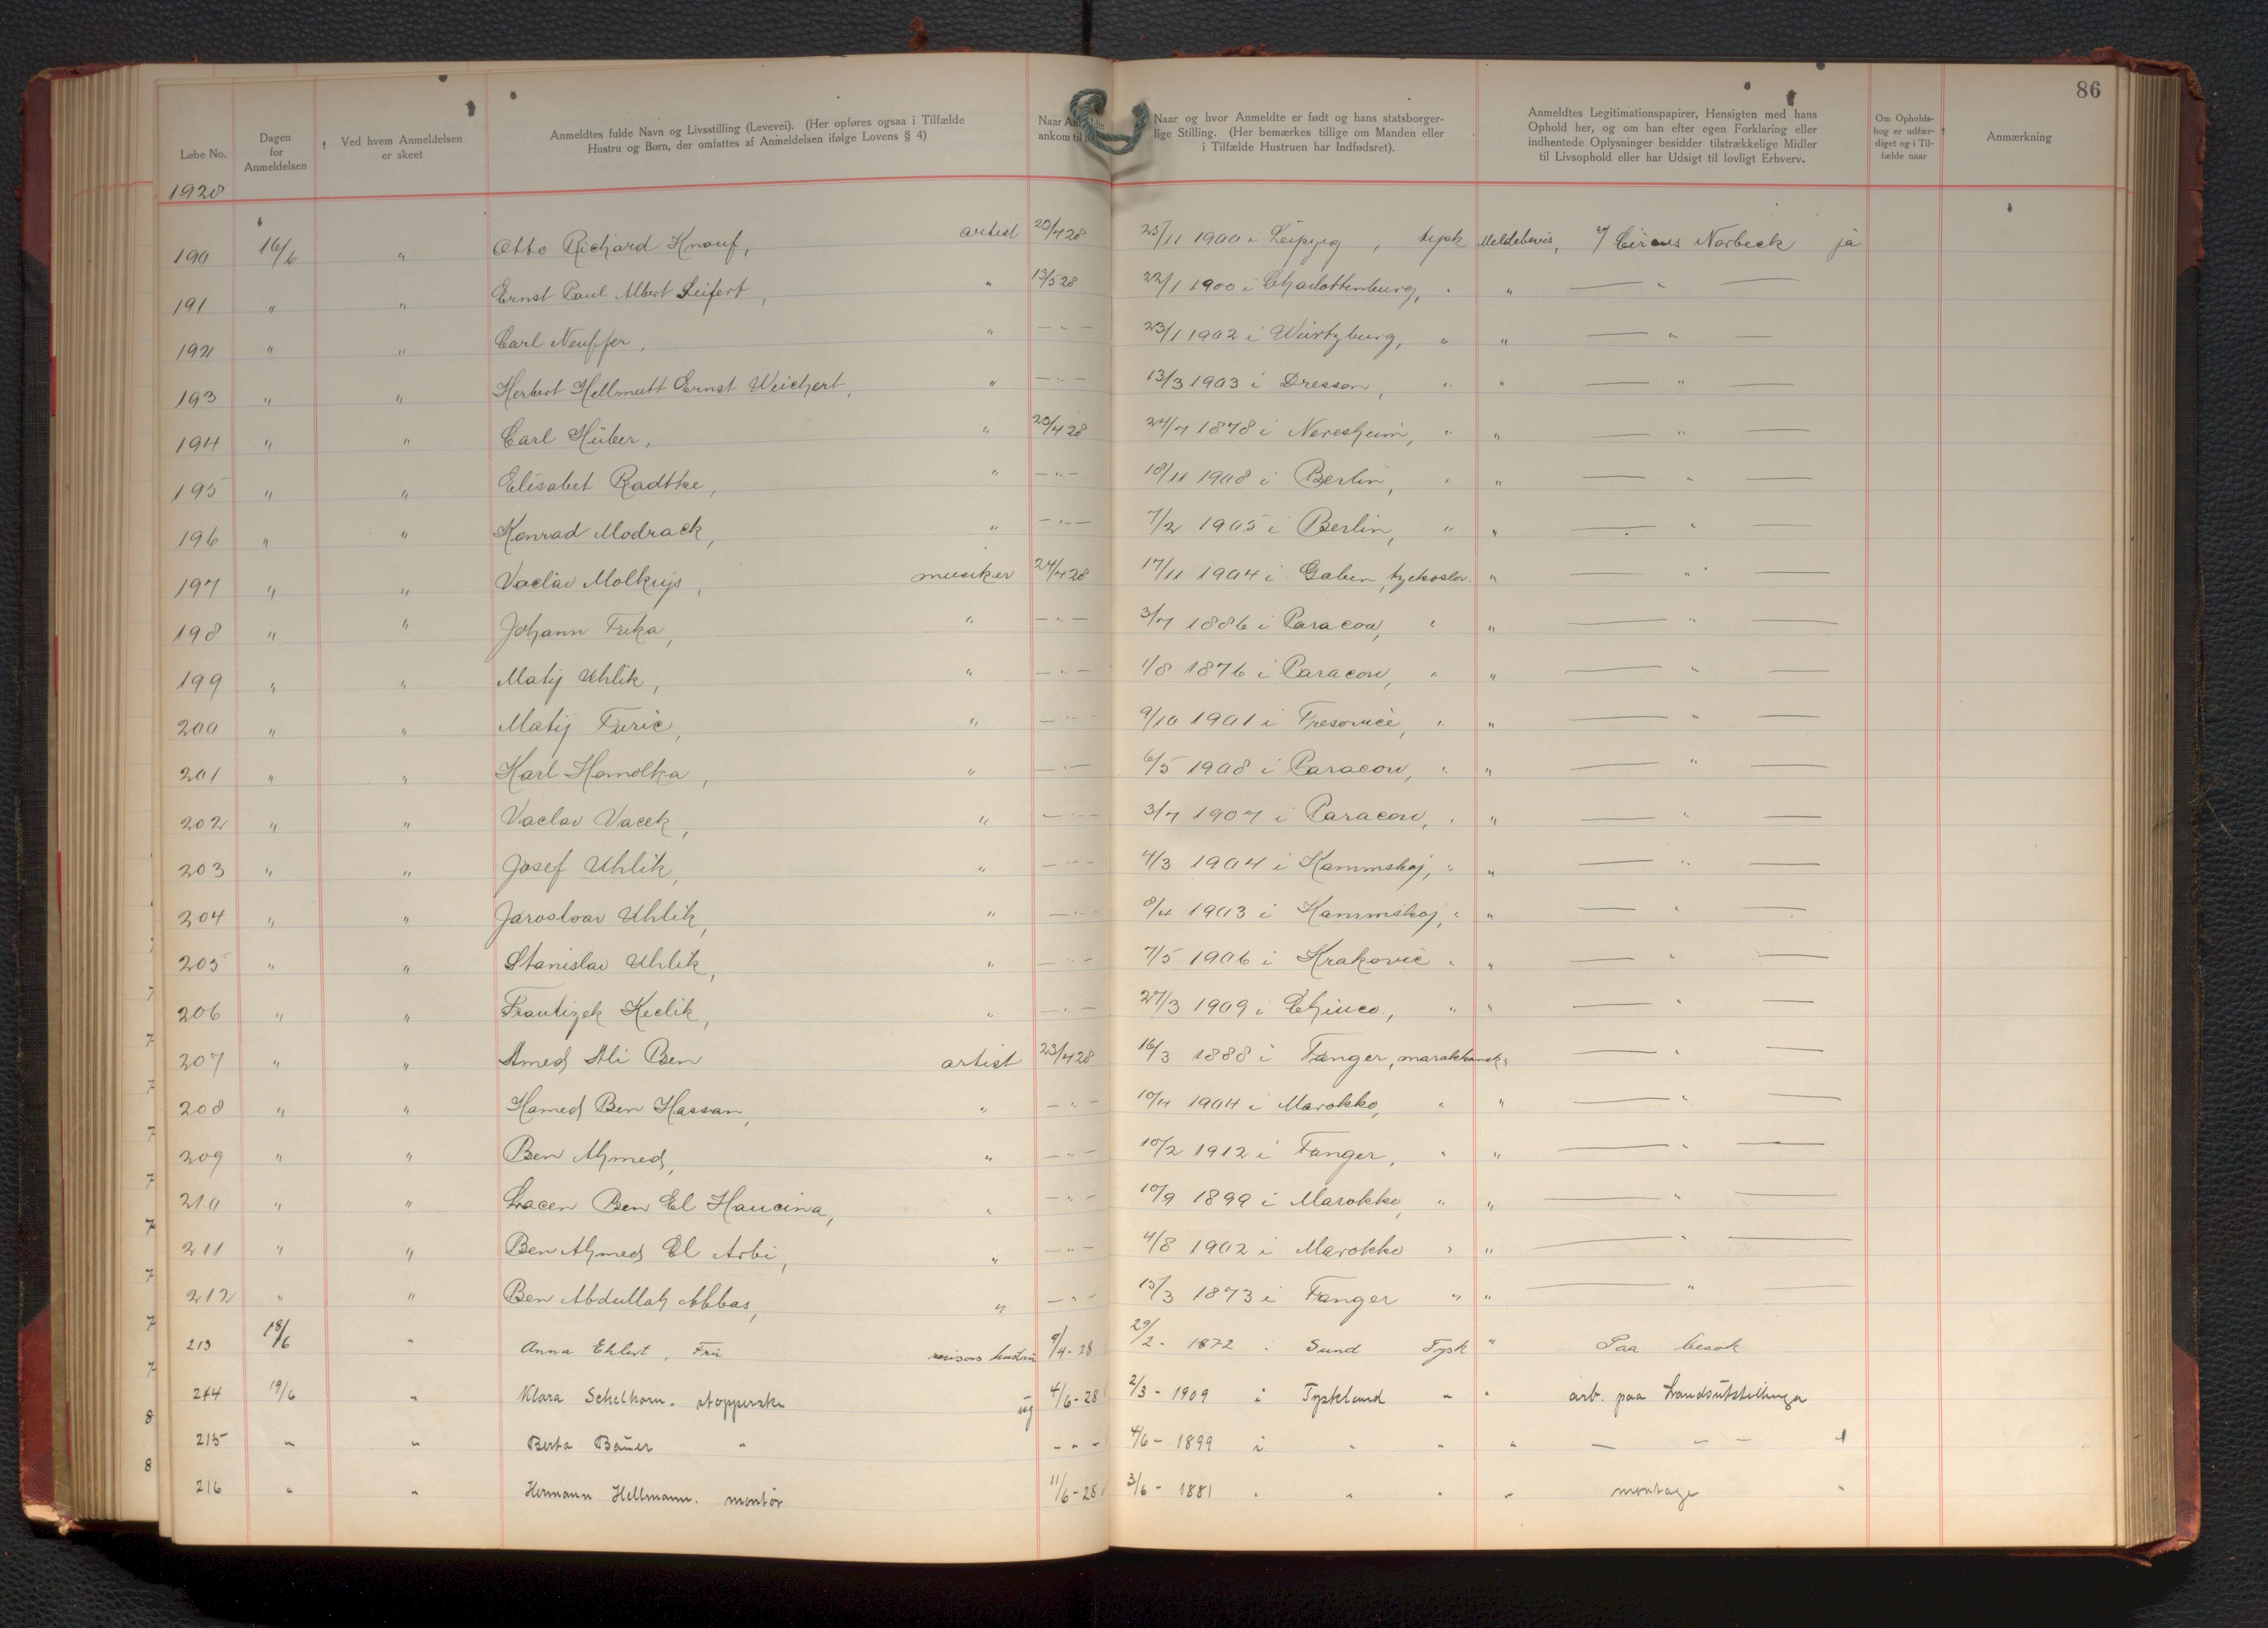 86
Løbe No. Dagen for Anmeldelsen Ved hvem Anmeldelsen er skeet Anmeldtes fulde Navn og Livsstilling (Levevei). (Her opføres ogsaa i Tilfælde Hustru og Børn, der omfattes af Anmeldelsen ifølge Lovens § 4) Naar Anmeldte ankom til Naar og hvor Anmeldte er født og hans statsborgerlige Stilling. (Her bemærkes tillige om Manden eller i Tilfælde Hustruen har Indfødsret). Anmeldtes Legitimationspapirer, Hensigten med hans Ophold her, og om han efter egen Forklaring eller indhentede Oplysninger besidder tilstrækkelige Midler til Livsophold eller har Udsigt til lovligt Erhverv. Om Opholdsbog er udfærdiget og i Tilfælde naar Anmærkning
1928
190 16/6 " Otto Richard Knauf, artist 20/4 28 25/11 1900 i Leipzig, tysk Meldebevis, v/ Circus Norbeck ja
191 " " Ernst Paul Albert Seifert, " 13/5 28 22/1 1900 i Charlottenburg, " " — " —
192 " " Carl Neuffer, " — " — 23/1 1902 i Würtzburg, " " — " —
193 " " Herbert Hellmutt Ernst Weichert, " — " — 13/3 1903 i Dresson, " " — " —
194 " " Carl Hüber, " 20/4 28 24/7 1878 i Neresheim, " " — " —
195 " " Elisabet Radtke, " — " — 18/11 1908 i Berlin, " " — " —
196 " " Konrad Modrack, " — " — 7/2 1905 i Berlin, " " — " —
197 " " Vaclav Molkujs, musiker 24/4 28 17/11 1904 i Gaben, tyckoslov. " — " —
198 " " Johann Fuka, " — " — 3/7 1886 i Paracow, " " — " —
199 " " Matij Uhlik, " — " — 1/8 1876 i Paracow, " " — " —
200 " " Matij Furic, " — " — 9/10 1901 i Fresovice, " " — " —
201 " " Karl Homolka, " — " — 6/5 1908 i Paracow, " " — " —
202 " " Vaclav Vacek, " — " — 3/7 1907 i Paracow, " " — " —
203 " " Josef Uhlik, " — " — 4/3 1904 i Kammskoj, " " — " —
204 " " Jaroslvav Uhlik, " — " — 8/4 1903 i Kammskoj, " " — " —
205 " " Stanislav Uhlik, " — " — 7/5 1906 i Krakovic " " — " —
206 " " Frantizek Keclik, " — " — 27/3 1909 i " " — " —
207 " " Amed Ali Ben artist 23/4 28 16/3 1888 i Tanger, marokkansk " — " —
208 " " Hamed Ben Hassan, " — " — 10/4 1904 i Marokko, " " — " —
209 " " Ben Ahmed, " — " — 10/2 1912 i Tanger, " " — " —
210 " " Lacen Ben El Haucina, " — " — 10/9 1899 i Marokko, " " — " —
211 " " Ben Ahmed El Arbi, " — " — 4/8 1902 i Marokko " " — " —
212 " " Ben Abdullah Abbas, " — " — 15/3 1873 i Tanger " " — " —
213 18/6 " Anna Ehlert, Fru hustru 9/4-28 29/2- 1872 " Sund Tysk " Paa besøk
214 19/6 " Klara Schelhorn. stopperske ug 4/6-28 2/3-1909 i Tyskland " " arb. paa Landsutstillinga
215 " " Berta Bauer " - " - 4/6-1899 i " " " — " —
216 " " Hermann Hellmann. montør 11/6-28 3/6-1881 " " " " montage "